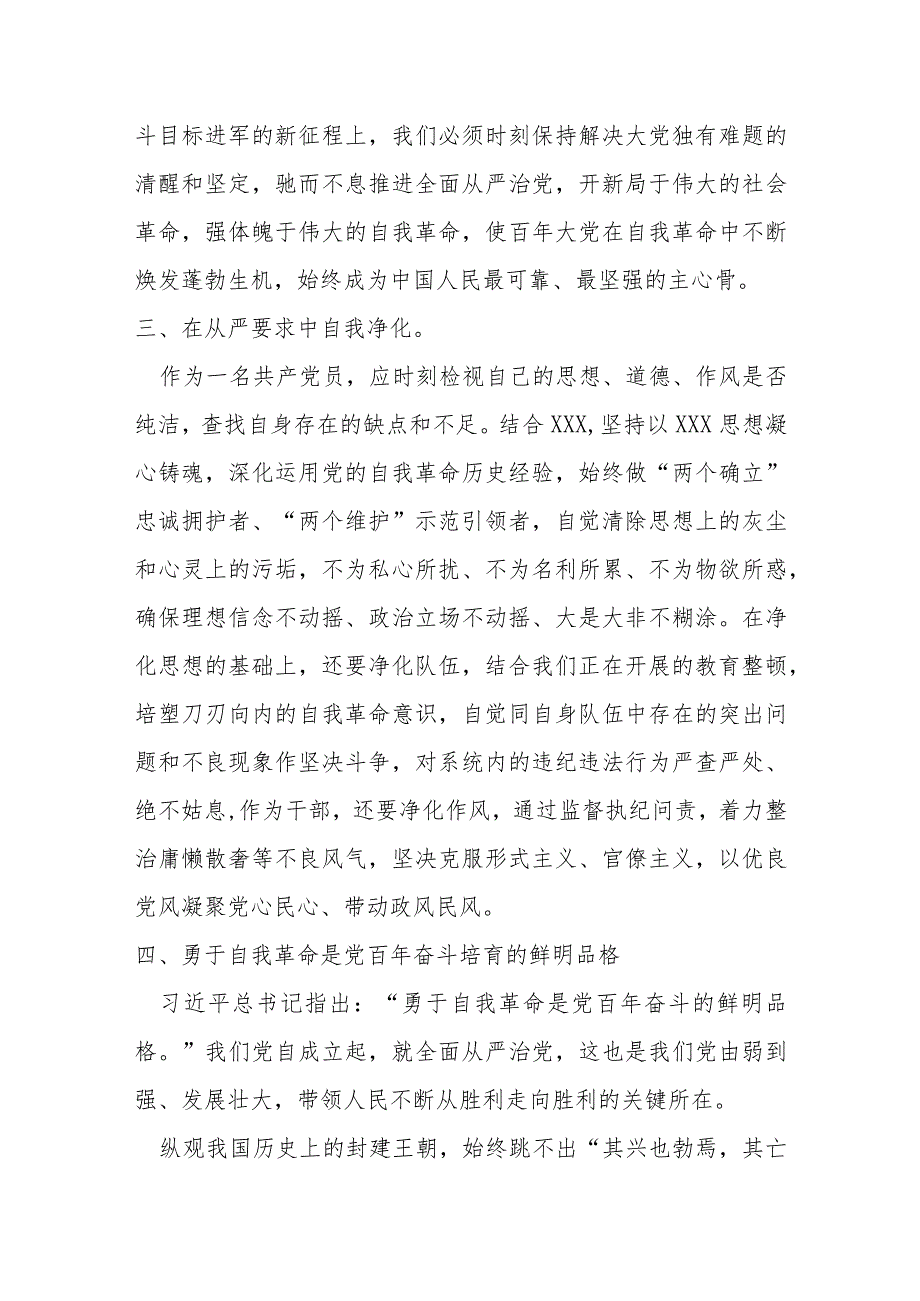 斗目标进军的新征程上，我们必须时刻保持解决大党独有难题的
清醒和坚定，驰而不息推进全面从严治党，开新局于伟大的社会
革命，强体魄于伟大的自我革命，使百年大党在自我革命中不断
焕发蓬勃生机，始终成为中国人民最可靠、最坚强的主心骨。
三、在从严要求中自我净化。
作为一名共产党员，应时刻检视自己的思想、道德、作风是否
纯洁，查找自身存在的缺点和不足。结合 XXX,坚持以 XXX 思想凝
心铸魂，深化运用党的自我革命历史经验，始终做“两个确立”
忠诚拥护者、“两个维护”示范引领者，自觉清除思想上的灰尘
和心灵上的污垢，不为私心所扰、不为名利所累、不为物欲所惑，
确保理想信念不动摇、政治立场不动摇、大是大非不糊涂。在净
化思想的基础上，还要净化队伍，结合我们正在开展的教育整顿，
培塑刀刃向内的自我革命意识，自觉同自身队伍中存在的突出问
题和不良现象作坚决斗争，对系统内的违纪违法行为严查严处、
绝不姑息,作为干部，还要净化作风，通过监督执纪问责，着力整
治庸懒散奢等不良风气，坚决克服形式主义、官僚主义，以优良
党风凝聚党心民心、带动政风民风。
四、勇于自我革命是党百年奋斗培育的鲜明品格
习近平总书记指出：“勇于自我革命是党百年奋斗的鲜明品
格。”我们党自成立起，就全面从严治党，这也是我们党由弱到
强、发展壮大，带领人民不断从胜利走向胜利的关键所在。
纵观我国历史上的封建王朝，始终跳不出“其兴也勃焉，其亡